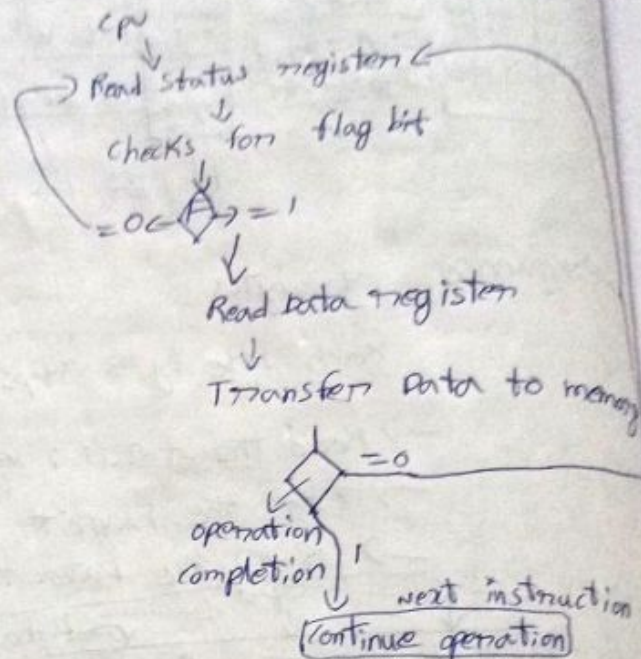 CPU
Read Status register
Checks for flag bit
=0 F =1
Read Data register
Transfer Data to memory
=0
operation
completion
1
Next instruction
Continue operation